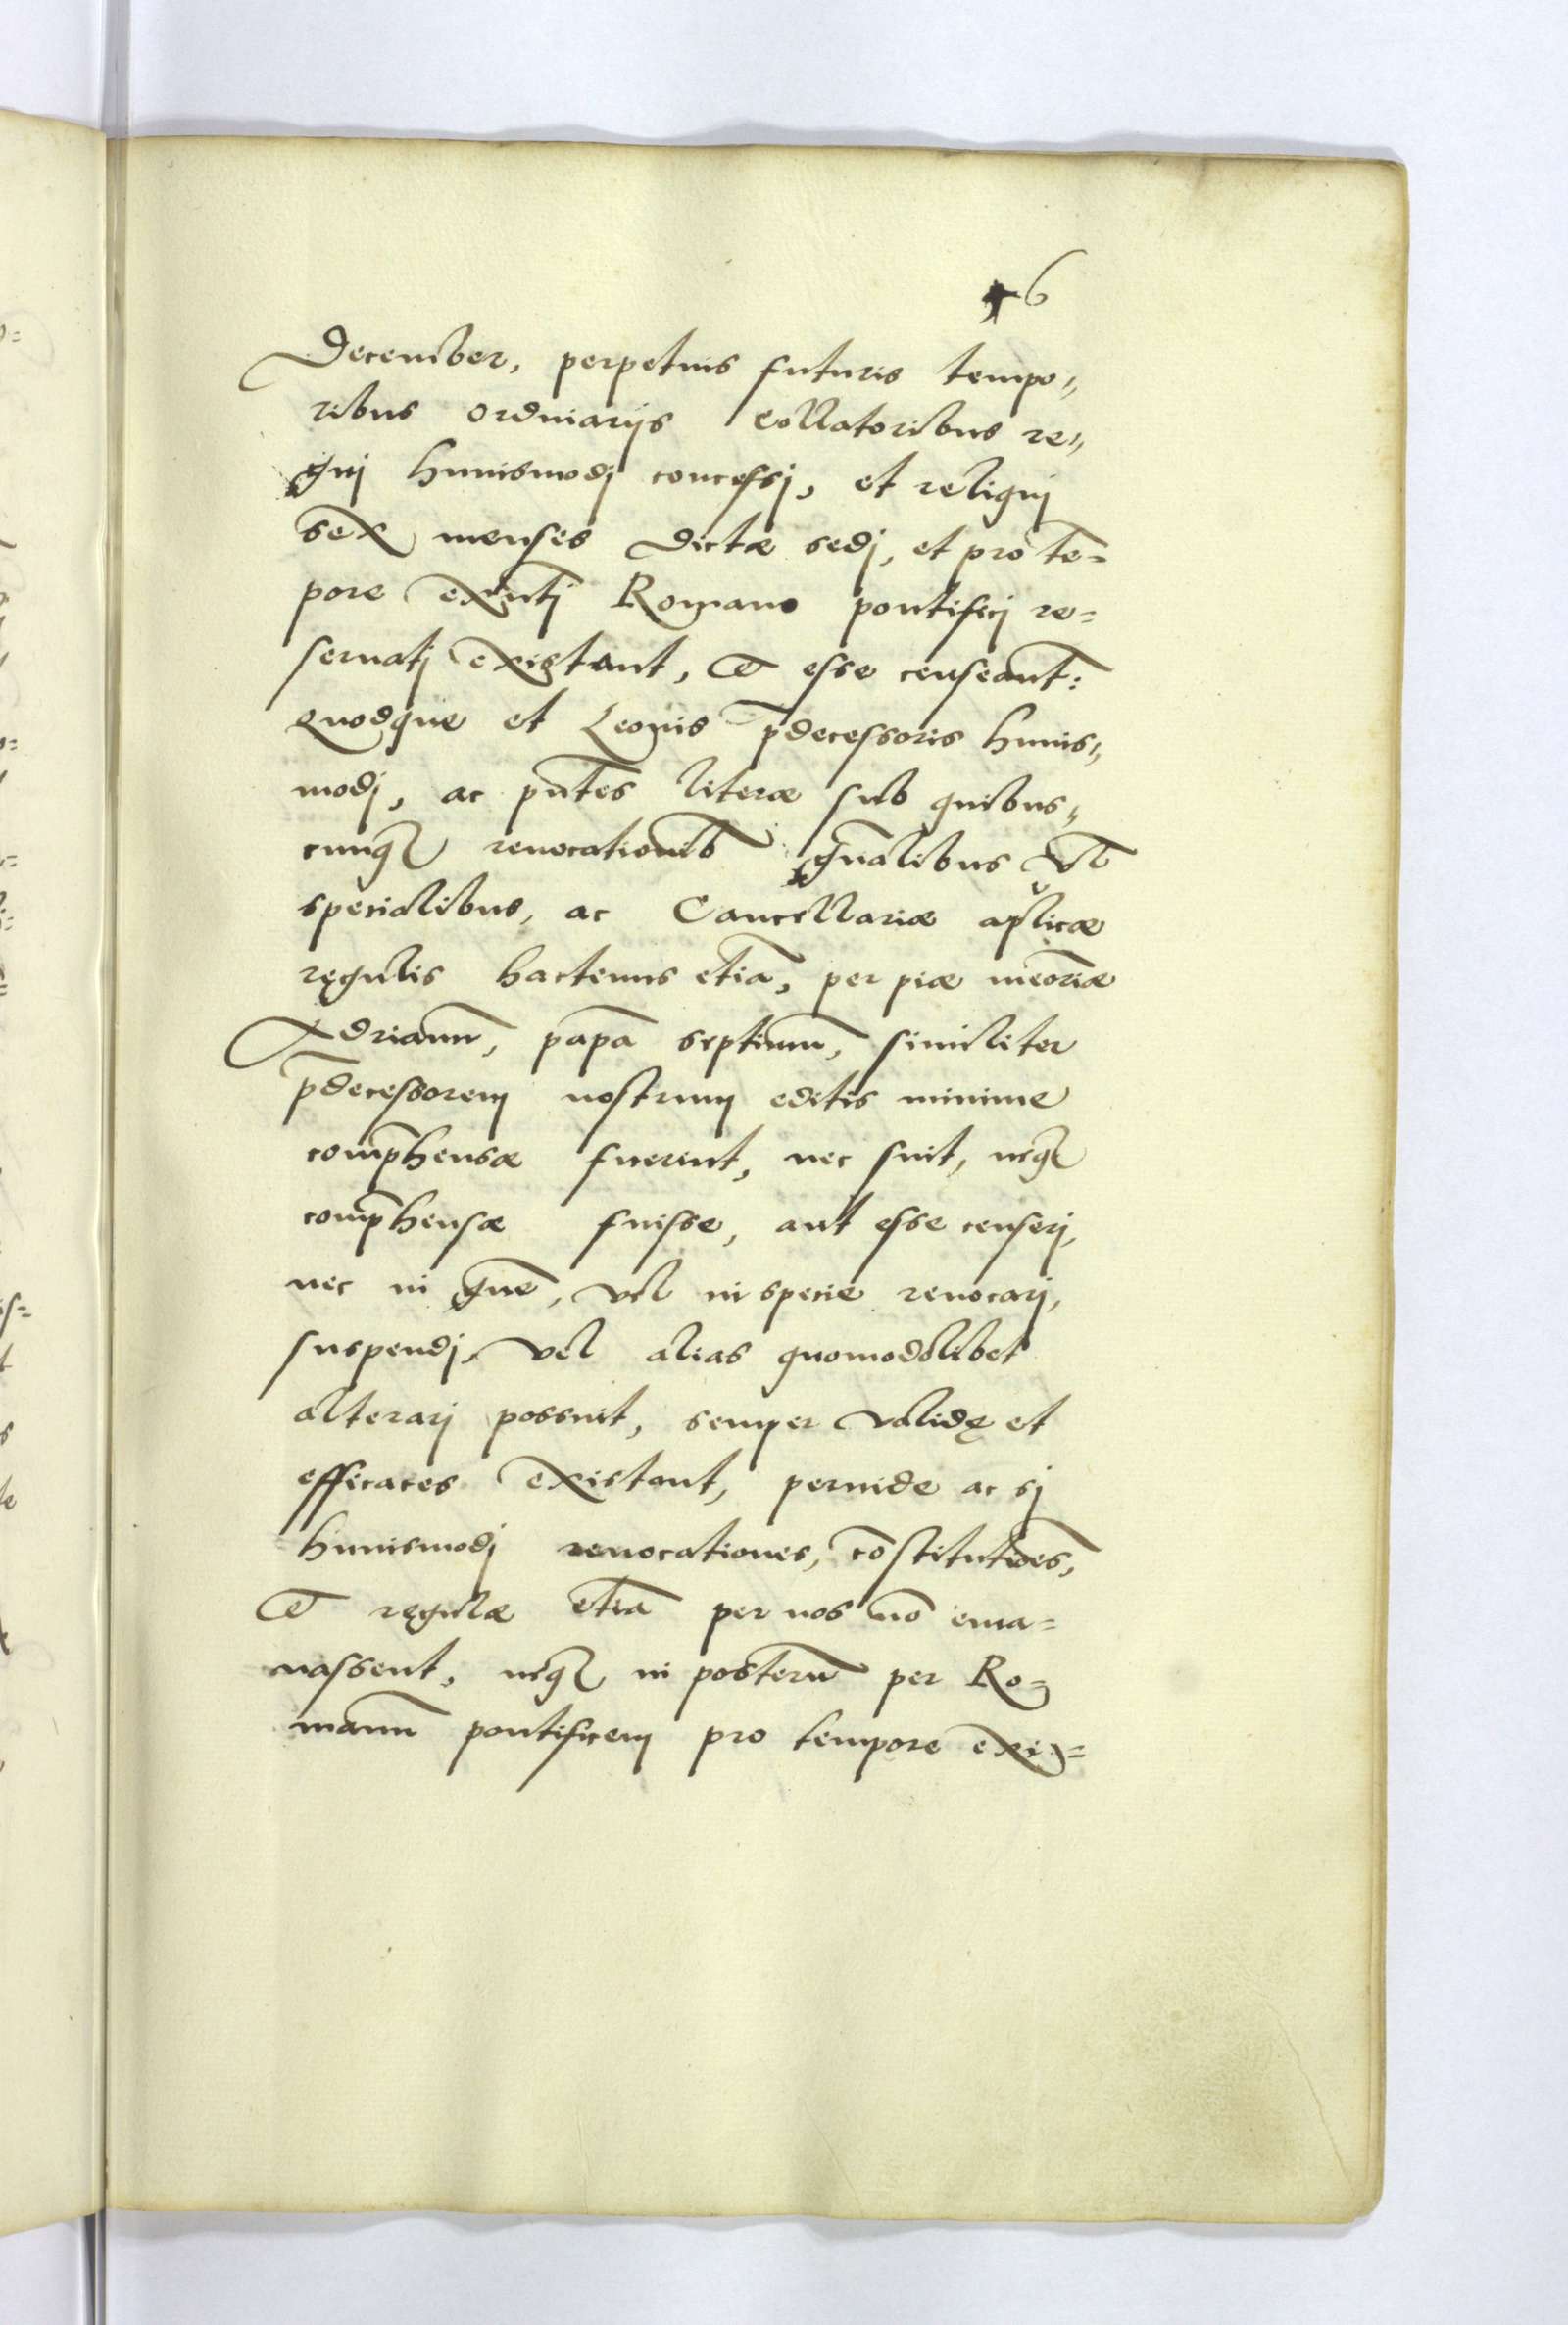 6
December, perpetuis futuris tempo„
ribus ordinarijs Collatoribus re„
gnj huiusmodj concessj, et reliquj
sex menses dictæ sedj, et pro tē=
pore exn̄tj Romano pontificj re=
seruatj existant, et esse censeant̄:
Quodque et Leonis p̄decessoris huius„
modj, ac pn̄tes literæ sub quibus„
cunq₃ reuocationib̄ gn̄alibus vl̄
specialibus, ac Cancellariæ apl̄icæ
regulis hactenus etiā, per piæ meōriæ
Adrianū, papā septimū, similiter
p̄decessorem nostrum editis minime
comp̄hensæ fuerint, nec sint, neq₃
comp̄hensæ fuisse, aut esse censerj,
nec in gn̄e, vel in specie reuocarj,
suspendj, vel alias quomodolibet
alterarj possint, semper validę et
efficaces existant, perinde ac sj
huiusmodj reuocationes, cōstitutiōes,
et regulæ etiā per nos nō ema=
nassent, neq₃ in posterū per Ro=
manū pontificem pro tempore exi=